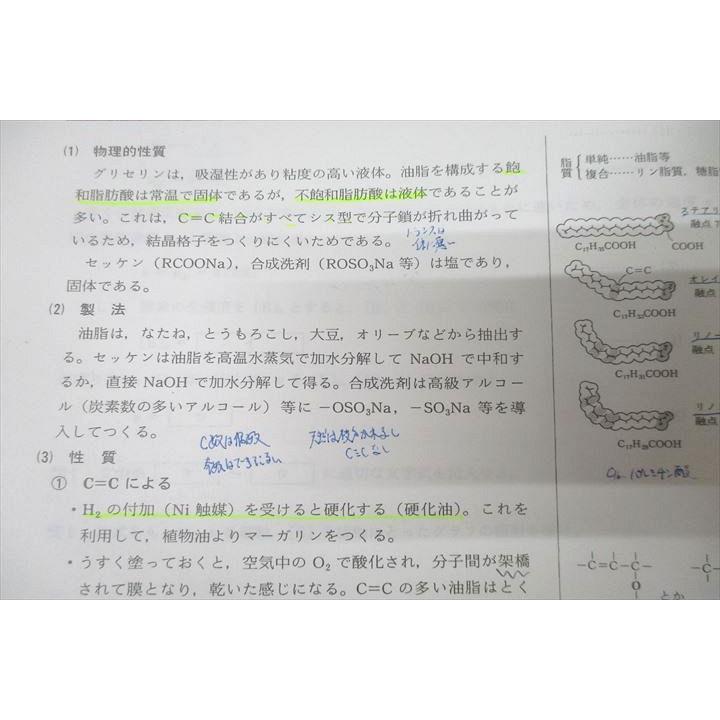 (1) 物理的性質
グリセリンは，吸湿性があり粘度の高い液体。油脂を構成する飽
和脂肪酸は常温で固体であるが，不飽和脂肪酸は液体であることが
多い。これは，C=C 結合がすべてシス型で分子鎖が折れ曲がって
いるため，結晶格子をつくりにくいためである。
トランスは
セッケン（RCOONa），合成洗剤（ROSO₃Na 等）は塩であり，
固体である。
(2) 製 法
油脂は，なたね，とうもろこし，大豆，オリーブなどから抽出す
る。セッケンは油脂を高温水蒸気で加水分解して NaOH で中和す
るか，直接 NaOH で加水分解して得る。合成洗剤は高級アルコー
ル（炭素数の多いアルコール）等に −OSO₃Na，−SO₃Na 等を導
入してつくる。
C=Cなし
(3) 性 質
① C=C による
・H₂ の付加（Ni 触媒）を受けると硬化する（硬化油）。これを
利用して，植物油よりマーガリンをつくる。
・うすく塗っておくと，空気中の O₂ で酸化され，分子間が架橋
されて膜となり，乾いた感じになる。C=C の多い油脂はとく
脂質
単純……油脂等
複合……リン脂質，糖脂
テアリ
融点 7
C₁₇H₃₅COOH
COOH
C=C
オレイ
融点
C₁₇H₃₃COOH
リノー
融点
C₁₇H₃₁COOH
リノ
融点
C₁₇H₂₉COOH
パルミチン酸
−C=C−C−
O
とか